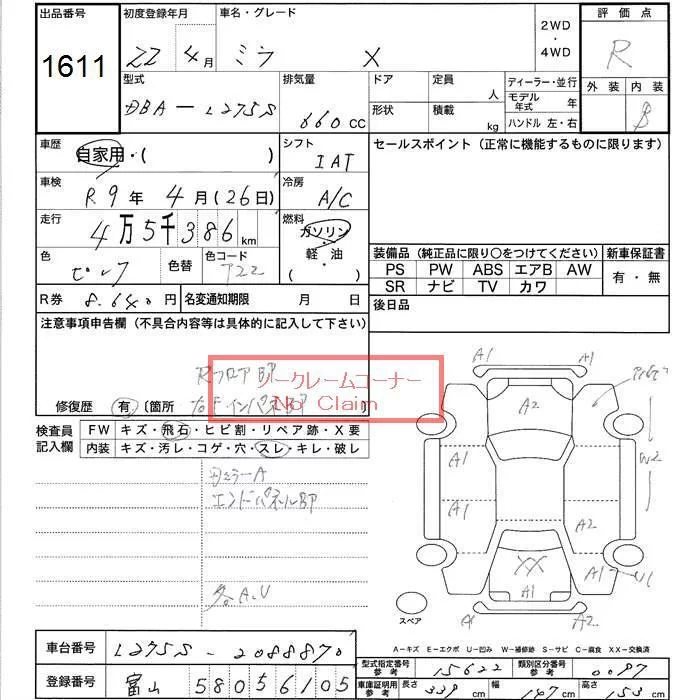 出品番号 初度登録年月 車名・グレード 2WD ・ 4WD 評価点
1611 22 4月 ミラ X R
外装 内装
B
型式 排気量 ドア 定員 人 ディーラー・並行
DBA-L275S 660cc 形状 積載 kg モデル年式 年
ハンドル 左・右
車歴 自家用・( ) シフト IAT セールスポイント(正常に機能するものに限ります)
車検 R9年 4月(26日) 冷房 A/C
走行 4万5千386km 燃料 ガソリン・軽油 ( )
色 ピンク 色替 色コード T22
装備品(純正品に限り○をつけてください) 新車保証書
PS PW ABS エアB AW 有・無
SR ナビ TV カワ
R券 8,640円 名変通知期限 月 日 後日品
注意事項申告欄(不具合内容等は具体的に記入して下さい)
RフロアBP
ノークレームコーナー
No Claim
修復歴 有(箇所 )
検査員記入欄 FW キズ・飛石・ヒビ割・リペア跡・X要
内装 キズ・汚レ・コゲ・穴・スレ・キレ・破レ
エンドパネルBP
各A.U
A1 A1
A2
A1 W2
A1 A2
XX A1 U1
A1
A2
スペア
A-キズ E-エクボ U-凹み W-補修跡 S-サビ C-腐食 XX-交換済
車台番号 L275S-2088870 型式指定番号 参考 15622 類別区分番号 参考 0097
登録番号 富山 58056105 車庫証明用 参考 長さ 339cm 幅 147cm 高さ 153cm